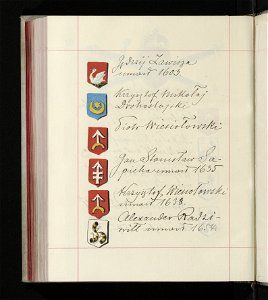 Jędrzej Zawisza
umarł 1603.
Krzysztof Mikołaj
Dorohostajski
Piotr Wiesiołowski
Jan Stanisław Sa-
pieha umarł 1635
Krzysztof Wiesiołowski
umarł 1638.
Alexander Radzi-
wiłł umarł 1654